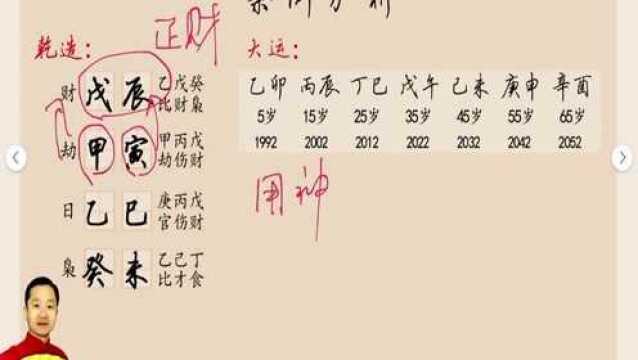 案例分析
正财
乾造： 大运：
财 戊 辰 乙戊癸
比财枭
劫 甲 寅 甲丙戊
劫伤财
日 乙 巳 庚丙戊
官伤财
枭 癸 未 乙己丁
比才食
乙卯 丙辰 丁巳 戊午 己未 庚申 辛酉
5岁 15岁 25岁 35岁 45岁 55岁 65岁
1992 2002 2012 2022 2032 2042 2052
用神